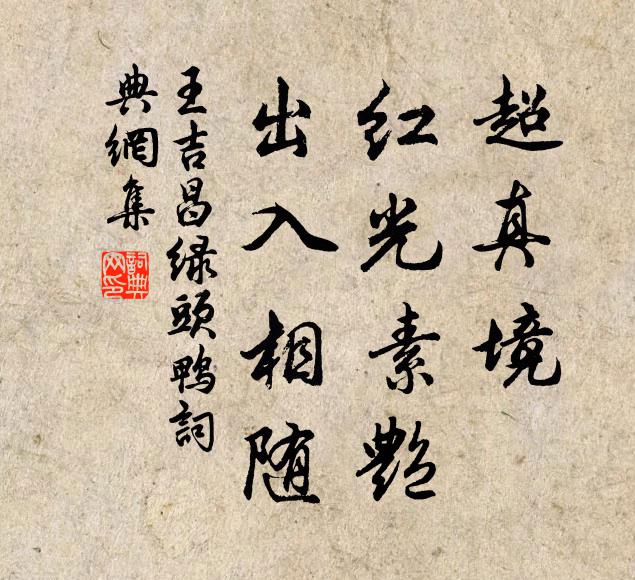 超真境
红光素艷
出入相随
王吉昌绿頭鸭詞
典網集
詞典网印